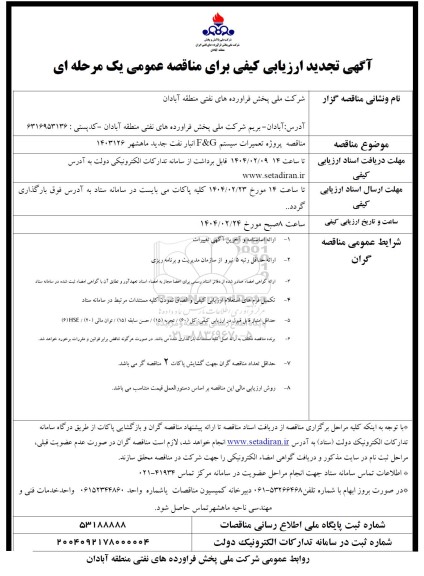 آگهی تجدید ارزیابی کیفی برای مناقصه عمومی یک مرحله ای
نام ونشانی مناقصه گزار
شرکت ملی پخش فراورده های نفتی منطقه آبادان
آدرس:آبادان- بریم شرکت ملی پخش فراورده های نفتی منطقه آبادان -کدپستی : ۶۳۱۶۹۵۳۱۳۶
موضوع مناقصه
مناقصه پروژه تعمیرات سیستم F&G انبار نفت جدید ماهشهر ۱۴۰۳۱۲۶
مهلت دریافت اسناد ارزیابی کیفی
تا ساعت ۱۴ ۱۴۰۴/۰۲/۰۹ قابل برداشت از سامانه تدارکات الکترونیکی دولت به آدرس
www.setadiran.ir
مهلت ارسال اسناد ارزیابی کیفی
تا ساعت ۱۴ مورخ ۱۴۰۴/۰۲/۲۳ کلیه پاکات می بایست در سامانه ستاد به آدرس فوق بارگذاری
گردد..
ساعت و تاریخ ارزیابی کیفی
ساعت ۸صبح مورخ ۱۴۰۴/۰۲/۲۴
شرایط عمومی مناقصه گران
۱- ارائه اساسنامه و آخرین آگهی تغییرات
۲- ارائه حداقل رتبه ۵ نیرو از سازمان مدیریت و برنامه ریزی
۳- ارائه گواهی امضاء صادر شده از دفاتر اسناد رسمی برای امضا مجاز به امضاء اسناد تعهدآور و تطابق آن با گواهی امضاء ثبت شده در سامانه ستاد
۴- تکمیل فرم های استعلام ارزیابی کیفی و الصاق نمودن کلیه مستندات مرتبط در سامانه ستاد
۵- حداقل امتیاز قابل قبول در ارزیابی کیفی: کل
۷- حداقل تعداد مناقصه گران جهت گشایش پاکات ۲ مناقصه گر می باشد.
۸- روش ارزیابی مالی این مناقصه بر اساس دستورالعمل قیمت متناسب می باشد.
*با توجه به اینکه کلیه مراحل برگزاری مناقصه از دریافت اسناد مناقصه تا ارائه پیشنهاد مناقصه گران و بازگشایی پاکات از طریق درگاه سامانه
تدارکات الکترونیک دولت (ستاد) به آدرس www.setadiran.ir انجام خواهد شد، لازم است مناقصه گران در صورت عدم عضویت قبلی،
مراحل ثبت نام در سایت مذکور و دریافت گواهی امضاء الکترونیکی را جهت شرکت در مناقصه محقق سازند.
* اطلاعات تماس سامانه ستاد جهت انجام مراحل عضویت در سامانه مرکز تماس ۴۱۹۳۴-۰۲۱
*در صورت بروز ابهام با شماره تلفن۵۳۲۶۶۴۶۸-۰۶۱ دبیرخانه کمیسیون مناقصات یاشماره واحد ۰۶۱۵۲۳۴۴۸۶۰ واحدخدمات فنی و
مهندسی ناحیه ماهشهرتماس حاصل شود.
شماره ثبت پایگاه ملی اطلاع رسانی مناقصات
۵۳۱۸۸۸۸۸
شماره ثبت در سامانه تدارکات الکترونیک دولت
۲۰۰۴۰۹۲۱۷۸۰۰۰۰۰۴
روابط عمومی شرکت ملی پخش فرآورده های نفتی منطقه آبادان